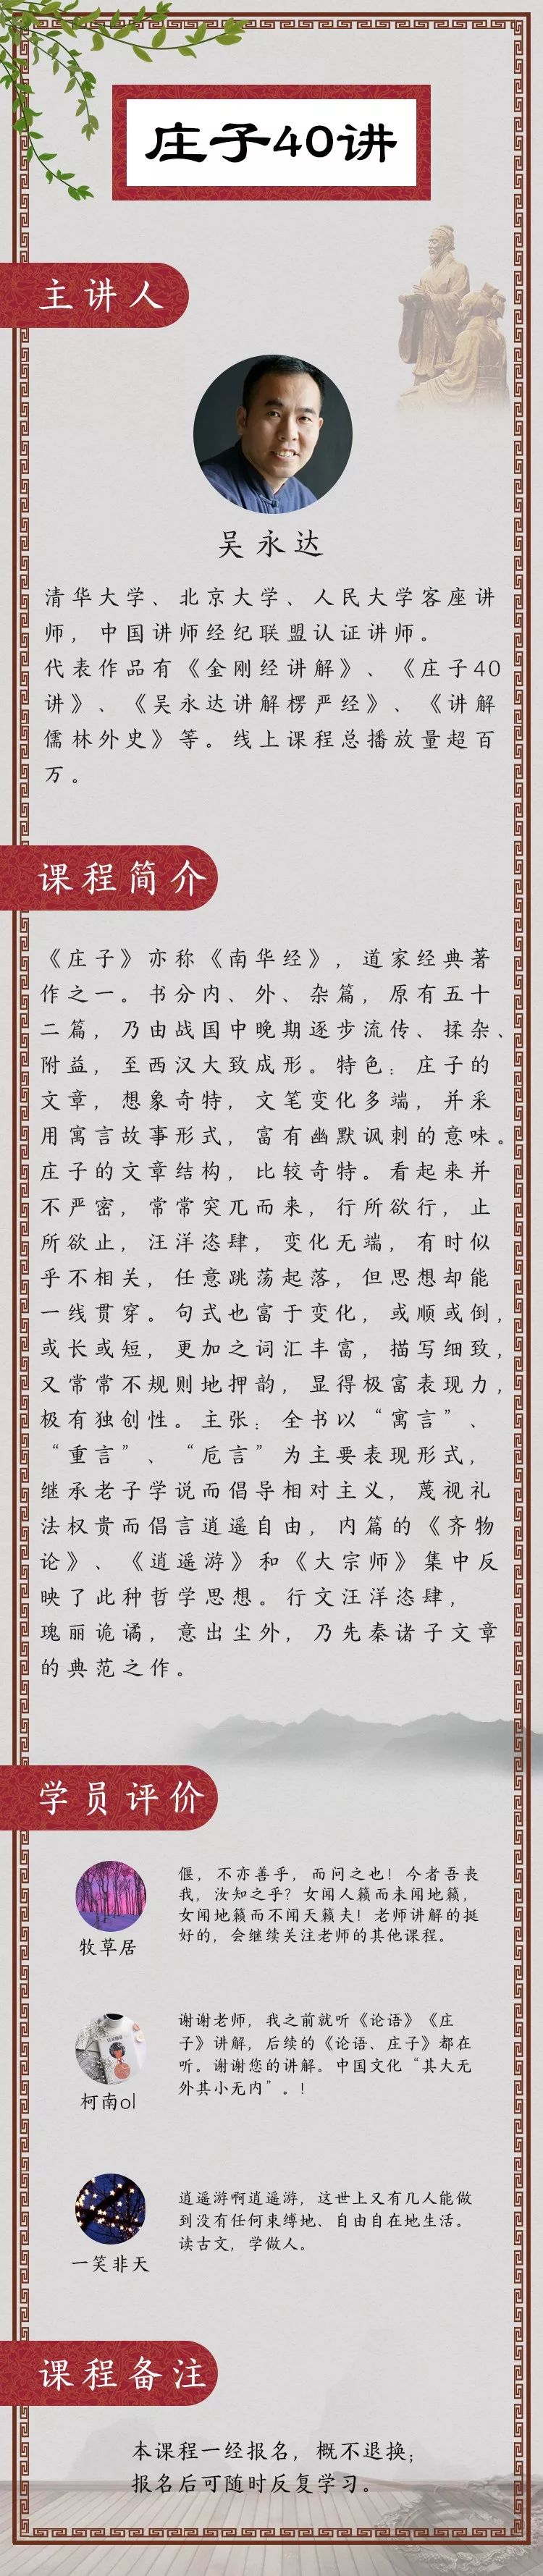 庄子40讲
主讲人
吴永达
清华大学、北京大学、人民大学客座讲
师，中国讲师经纪联盟认证讲师。
代表作品有《金刚经讲解》、《庄子40
讲》、《吴永达讲解楞严经》、《讲解
儒林外史》等。线上课程总播放量超百
万。
课程简介
《庄子》亦称《南华经》，道家经典著
作之一。书分内、外、杂篇，原有五十
二篇，乃由战国中晚期逐步流传、揉杂、
附益，至西汉大致成形。特色：庄子的
文章，想象奇特，文笔变化多端，并采
用寓言故事形式，富有幽默讽刺的意味。
庄子的文章结构，比较奇特。看起来并
不严密，常常突兀而来，行所欲行，止
所欲止，汪洋恣肆，变化无端，有时似
乎不相关，任意跳荡起落，但思想却能
一线贯穿。句式也富于变化，或顺或倒，
或长或短，更加之词汇丰富，描写细致，
又常常不规则地押韵，显得极富表现力，
极有独创性。主张：全书以“寓言”、
“重言”、“卮言”为主要表现形式，
继承老子学说而倡导相对主义，蔑视礼
法权贵而倡言逍遥自由，内篇的《齐物
论》、《逍遥游》和《大宗师》集中反
映了此种哲学思想。行文汪洋恣肆，
瑰丽诡谲，意出尘外，乃先秦诸子文章
的典范之作。
学员评价
偃，不亦善乎，而问之也！今者吾丧
我，汝知之乎？女闻人籁而未闻地籁，
女闻地籁而不闻天籁夫！老师讲解的挺
好的，会继续关注老师的其他课程。
牧草居
谢谢老师，我之前就听《论语》《庄
子》讲解，后续的《论语、庄子》都在
听。谢谢您的讲解。中国文化“其大无
外其小无内”。！
柯南ol
逍遥游啊逍遥游，这世上又有几人能做
到没有任何束缚地、自由自在地生活。
读古文，学做人。
一笑非天
课程备注
本课程一经报名，概不退换；
报名后可随时反复学习。